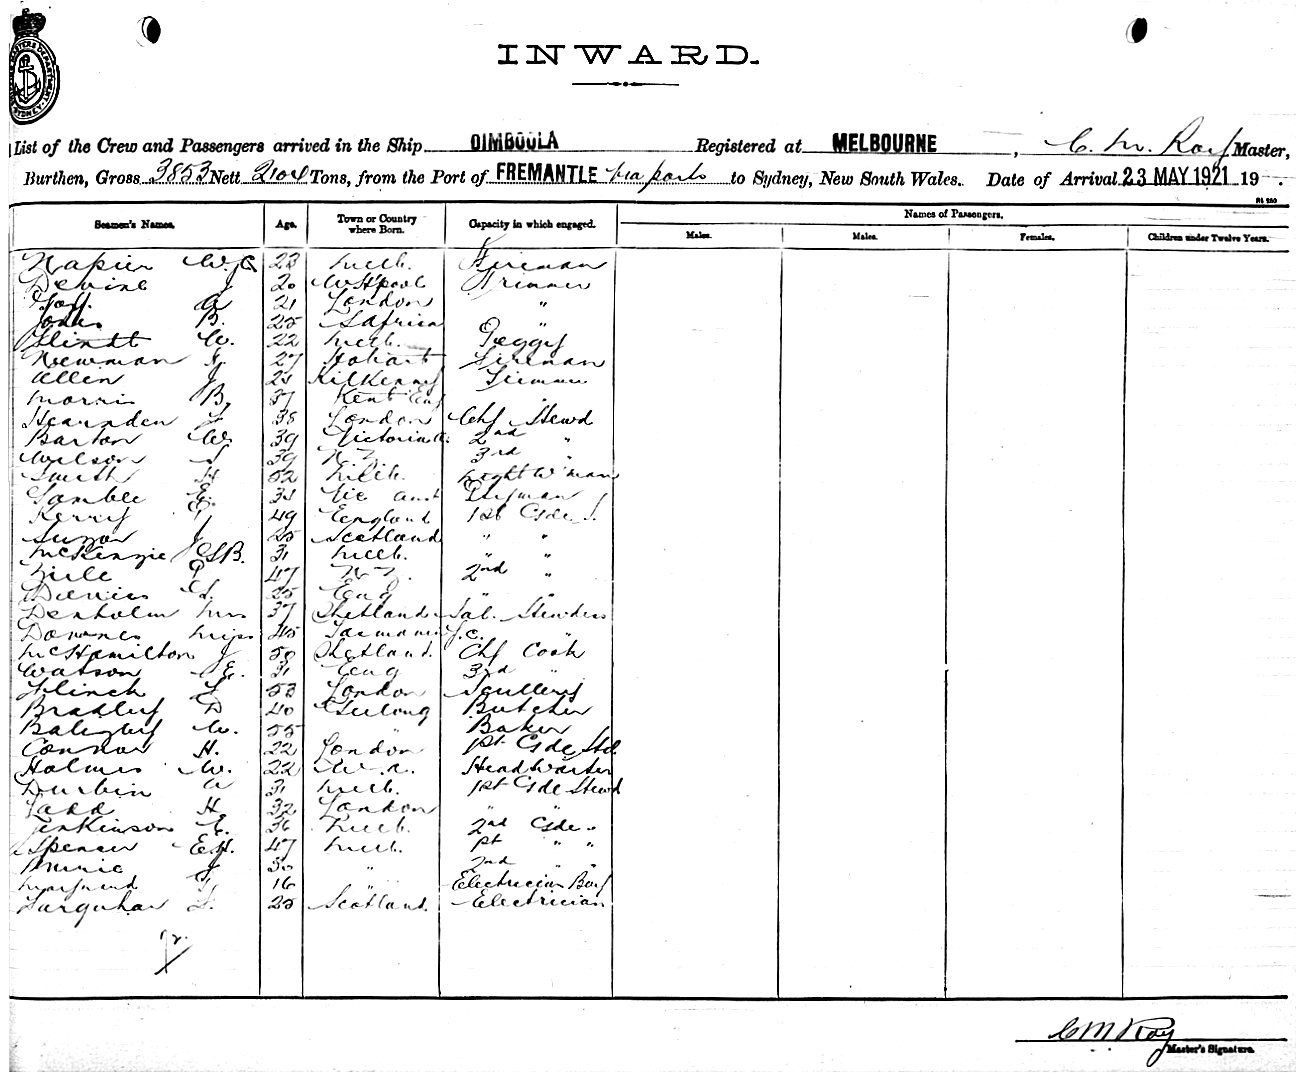 INWARD.
List of the Crew and Passengers arrived in the Ship DIMBOOLA Registered at MELBOURNE, C. M. Roy Master,
Burthen, Gross 3853 Nett 2104 Tons, from the Port of FREMANTLE via ports to Sydney, New South Wales. Date of Arrival 23 MAY 1921 19 .
Names of Passengers.
Seamen's Names. Age. Town or Country where Born. Capacity in which engaged. Males. Males. Females. Children under Twelve Years.
Napier W. 23 Melb. Fireman
Devine J 20 W H'pool Trimmer
Goff. A 21 London "
Jones B. 25 S Africa "
W. 22 Melb. Peggy
Newman 27 Hobart Fireman
Allen J 21 Kilkenny Trimmer
Morris B. 37 Kent Eng "
Hearnden 38 London Chf Stewd
Barton W. 39 Victoria 2nd "
Wilson 39 N Z 3rd "
Smith H 52 Melb. Night W'man
Gamble E. 31 Vic aust
Kerry 49 England 1st Gde S.
J 25 Scotland " "
McKenzie J G B. 31 Melb. " "
47 N Z. 2nd "
Davies 25 Eng " "
Denholm Mrs 37 Shetland Sal. Stewdess
Downes Miss 45 Tasmania F.C. "
McHamilton J 50 Shetland. Chf Cook
Watson E. 31 Eng 3rd "
Flinch 53 London Scullery
Bradley D 40 Geelong Butcher
W. 55 " Baker
Connor H. 22 London 1st Gde Std.
Holmes W. 22 W. A. Head Waiter
Durbin A 31 Melb. 1st Gde Stewd
Ladd H 32 London " "
Jenkinson 36 Melb. 2nd Gde "
Spencer E H. 47 Melb. 1st " "
J 30 " 2nd " "
16 " Electrician Boy
Farquhar 25 Scotland. Electrician
C M Roy
Master's Signature.